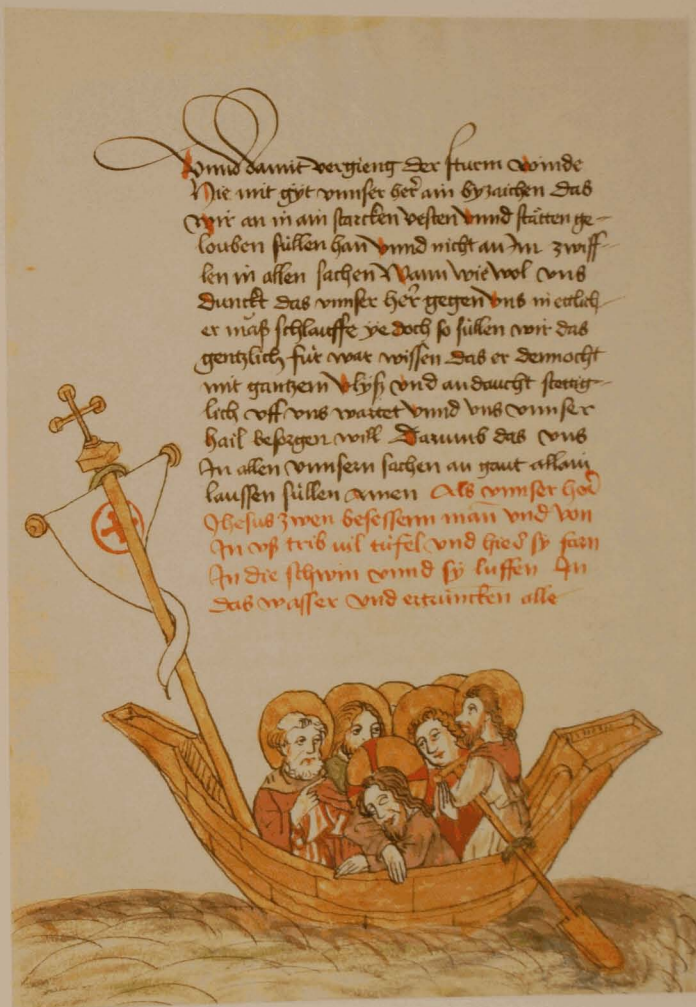 Vnnd damit vergieng der sturm winde
Hie mit gyt vnnser her ain byzaichen das
wir an in ain starcken vesten vnnd stätten ge-
louben süllen han vnnd nicht an Im zwiff-
len in allen sachen Wann wie wol vns
dunckt das vnnser her gegen vns in ettlich-
er maß schlauffe ye doch so süllen wir das
gentzlich für war wissen das er dennocht
mit gantzem vlyß vnd andaucht stettig-
lich vff vns wartet vnnd vns vnnser
hail besorgen will Darumb das vns
In allen vnnsern sachen an gaut allain
laussen süllen Amen Als vnnser her
Jhesus zwen besessenn man vnd von
In vß trib vil tüfel vnd hieß sy farn
In die schwin vnnd sy luffen In
das wasser vnd ertruncken alle